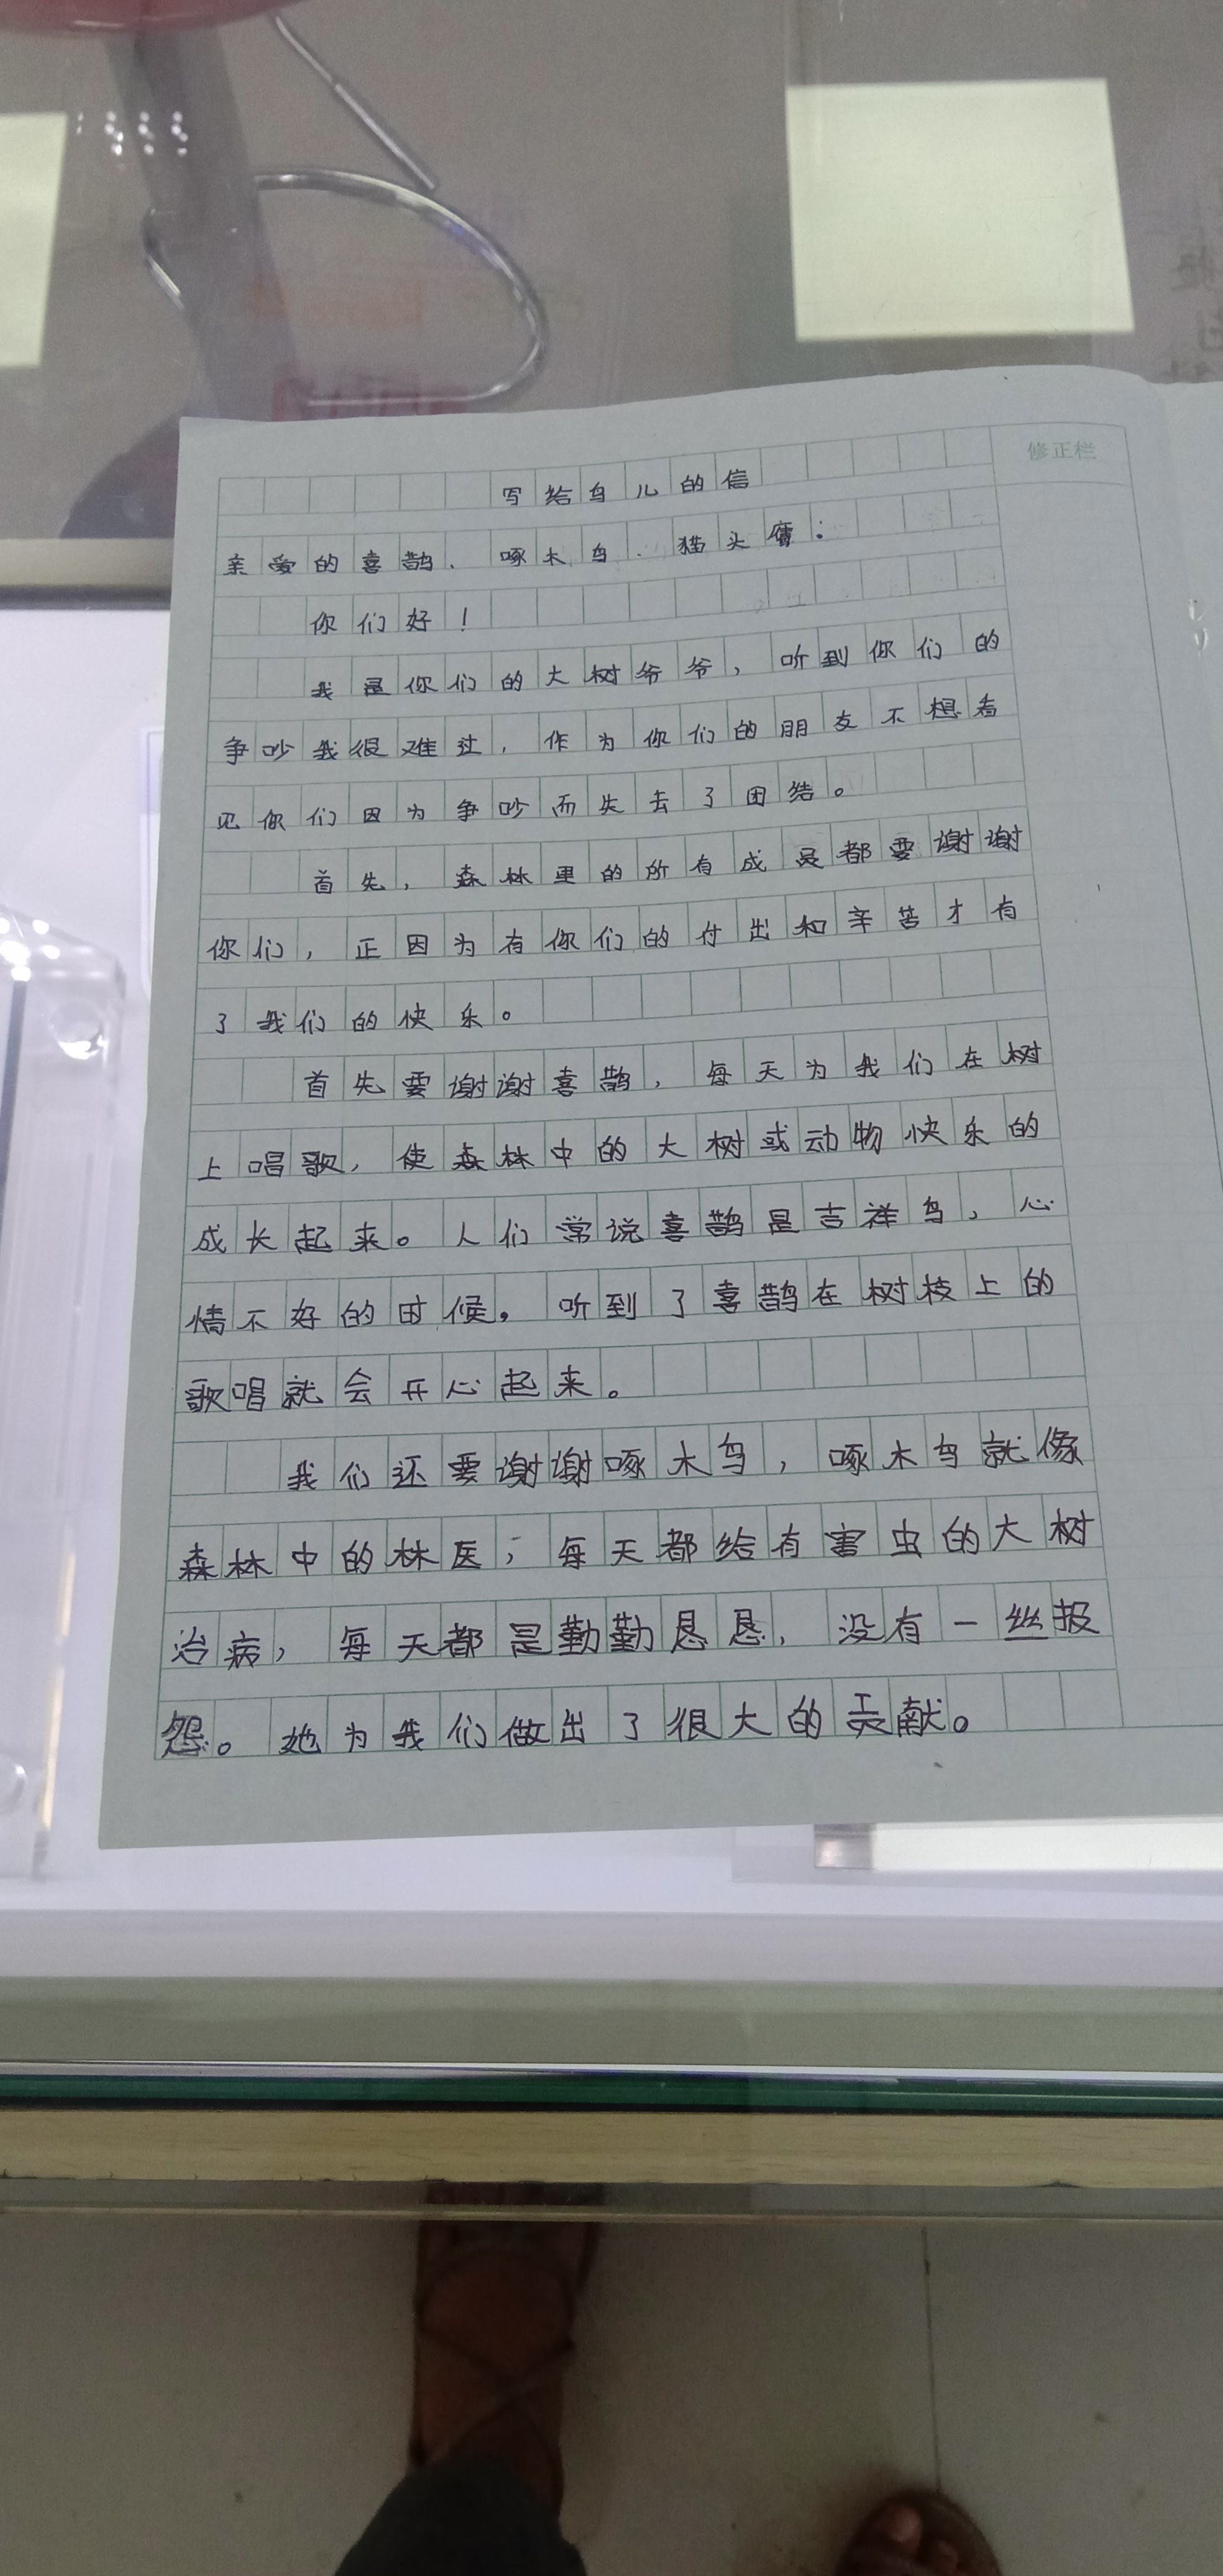 修正栏
写给鸟儿的信
亲爱的喜鹊、啄木鸟、猫头鹰：
你们好！
我是你们的大树爷爷，听到你们的
争吵我很难过，作为你们的朋友不想看
见你们因为争吵而失去了团结。
首先，森林里的所有成员都要谢谢
你们，正因为有你们的付出和辛苦才有
了我们的快乐。
首先要谢谢喜鹊，每天为我们在树
上唱歌，使森林中的大树或动物快乐的
成长起来。人们常说喜鹊是吉祥鸟，心
情不好的时候。听到了喜鹊在树枝上的
歌唱就会开心起来。
我们还要谢谢啄木鸟，啄木鸟就像
森林中的林医；每天都给有害虫的大树
治病，每天都是勤勤恳恳，没有一丝报
怨。她为我们做出了很大的贡献。